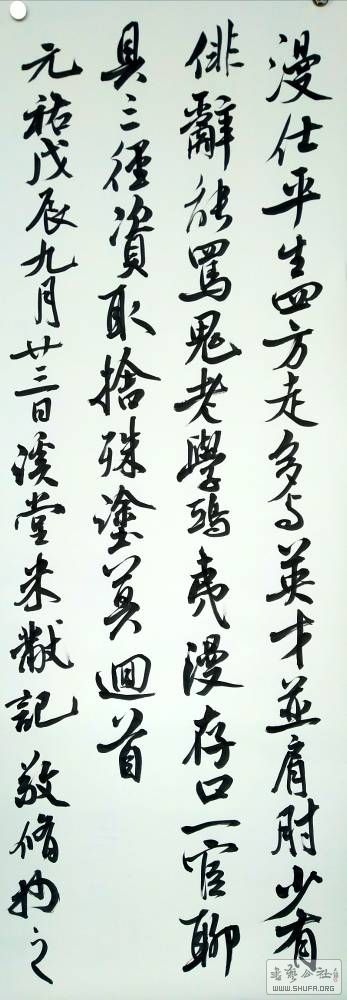 漫仕平生四方走多与英才並肩肘少有
俳辭能罵鬼老學鴟夷漫存口一官聊
具三徑資取捨殊塗莫迴首
元祐戊辰九月廿三日溪堂米黻記 敬脩抄之
WWW.SHUFA.ORG